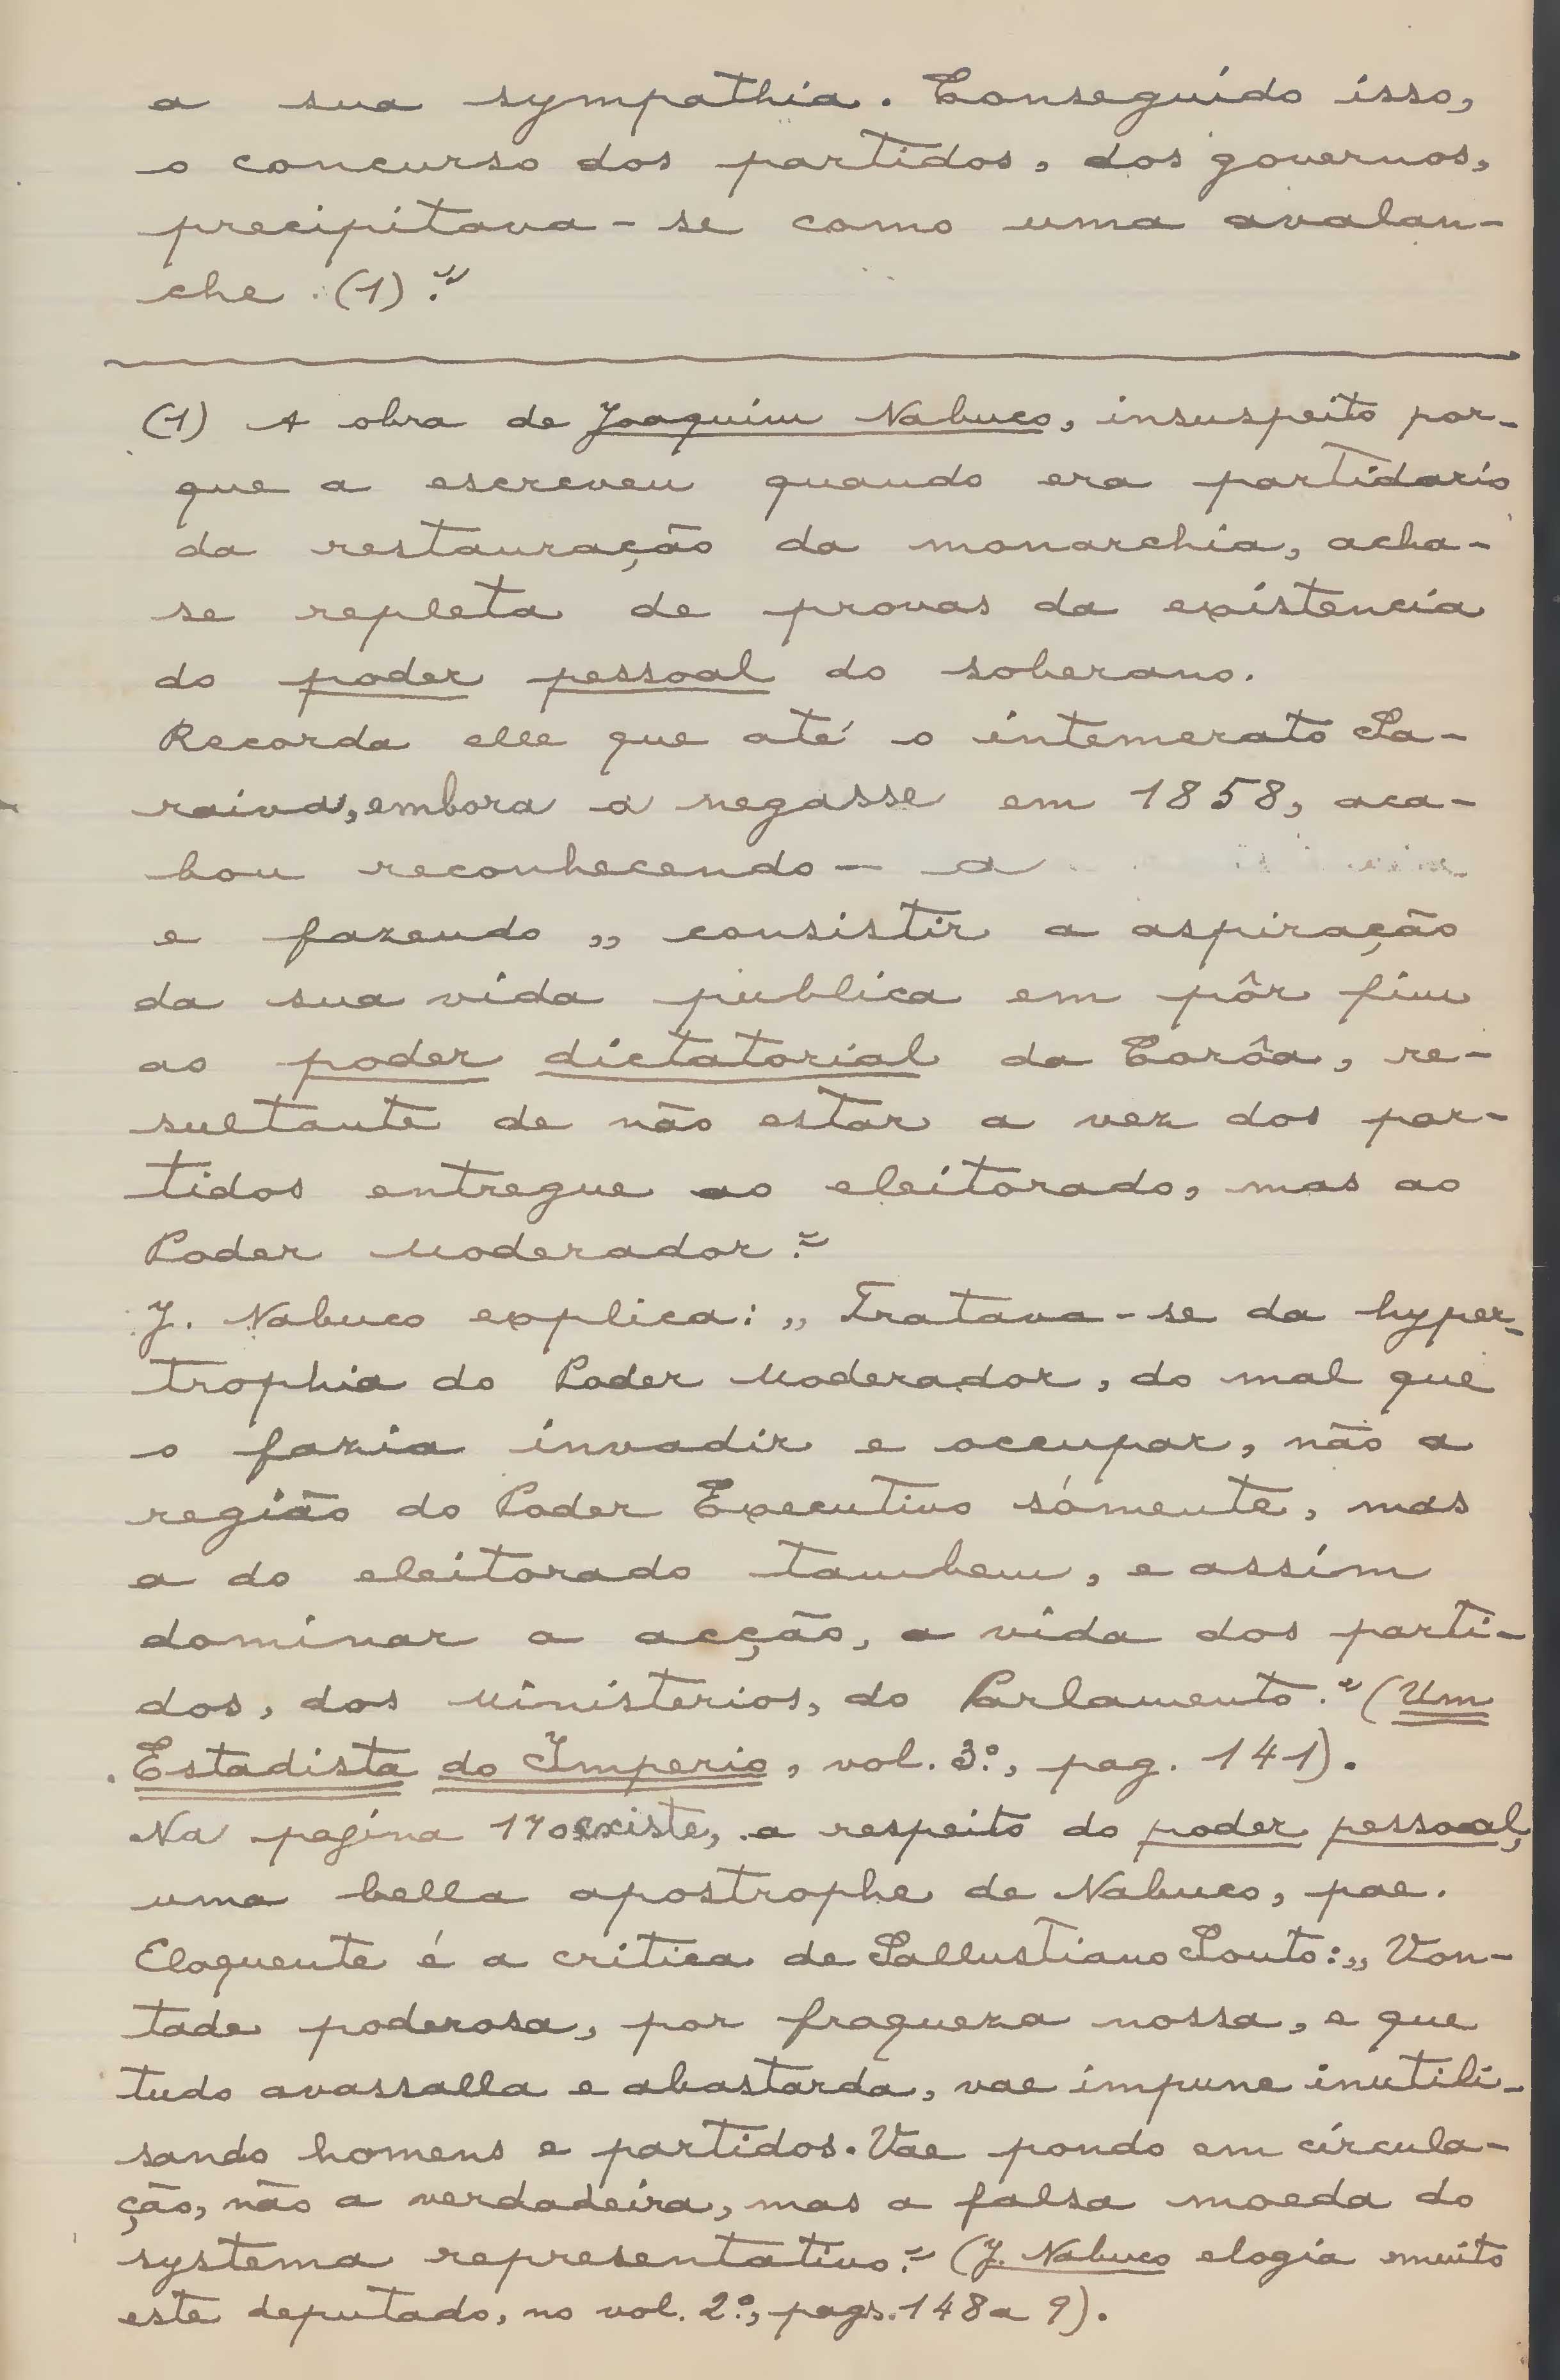 a sua sympathia. Conseguido isso,
o concurso dos partidos, dos governos,
precipitava-se como uma avalan-
che (1)."
(1) A obra de Joaquim Nabuco, insuspeito por-
que a escreveu quando era partidario
da restauração da monarchia, acha-
se repleta de provas da existencia
do poder pessoal do soberano.
Recorda elle que até o intemerato Sa-
raiva, embora o negasse em 1858, aca-
bou reconhecendo-o
e fazendo „ consistir a aspiração
da sua vida publica em pôr fim
ao poder dictatorial da Corôa, re-
sultante de não estar a vez dos par-
tidos entregue ao eleitorado, mas ao
Poder Moderador."
J. Nabuco explica: „ Tratava-se da hyper-
trophia do Poder Moderador, do mal que
o fazia invadir e occupar, não a
região do Poder Executivo sómente, mas
a do eleitorado tambem, e assim
dominar a acção, a vida dos parti-
dos, dos Ministerios, do Parlamento." (Um
Estadista do Imperio, vol. 3º, pag. 141).
Na pagina 170 existe, a respeito do poder pessoal,
uma bella apostrophe de Nabuco, pae.
Eloquente é a critica de Sallustiano Souto: „ Von-
tade poderosa, por fraqueza nossa, e que
tudo avassalla e abastarda, vae impune inutili-
sando homens e partidos. Vae pondo em circula-
ção, não a verdadeira, mas a falsa moeda do
systema representativo." (J. Nabuco elogia muito
este deputado, no vol. 2º, pags. 148 a 9).